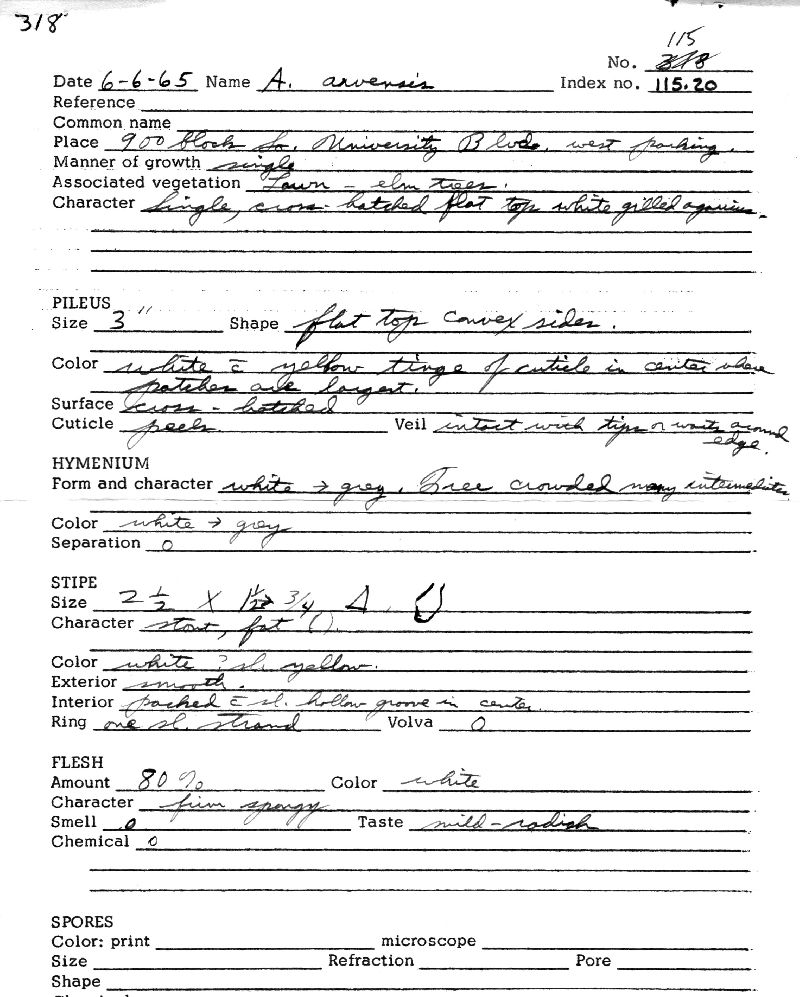 318
115
No. 318
Date 6-6-65 Name A. arvensis Index no. 115.20
Reference
Common name
Place 900 block So. University Blvd. west parking.
Manner of growth single
Associated vegetation Lawn - elm trees.
Character Single, cross-hatched flat top white gilled agaricus.
PILEUS
Size 3" Shape flat top convex sides.
Color white c̄ yellow tinge of cuticle in center where
patches are largest.
Surface cross-hatched
Cuticle peels Veil intact with tips or warts around
edge.
HYMENIUM
Form and character white → grey. Free crowded many intermediates
Color white → grey
Separation 0
STIPE
Size 2 1/2 X 3/4
Character stout, fat ().
Color white ? sl. yellow.
Exterior smooth.
Interior packed c̄ sl. hollow groove in center.
Ring one sl. strand Volva 0
FLESH
Amount 80% Color white
Character firm spongy
Smell 0 Taste mild-radish
Chemical 0
SPORES
Color: print microscope
Size Refraction Pore
Shape